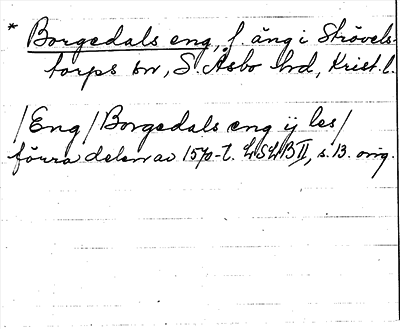 * Borgedals eng, f. äng i Strövels-
torps sn, S. Åsbo hd, Krist. l.
/Eng/ Borgedals eng ij les/
förra delen av 1570-t. LSLB II, s. 13. orig.